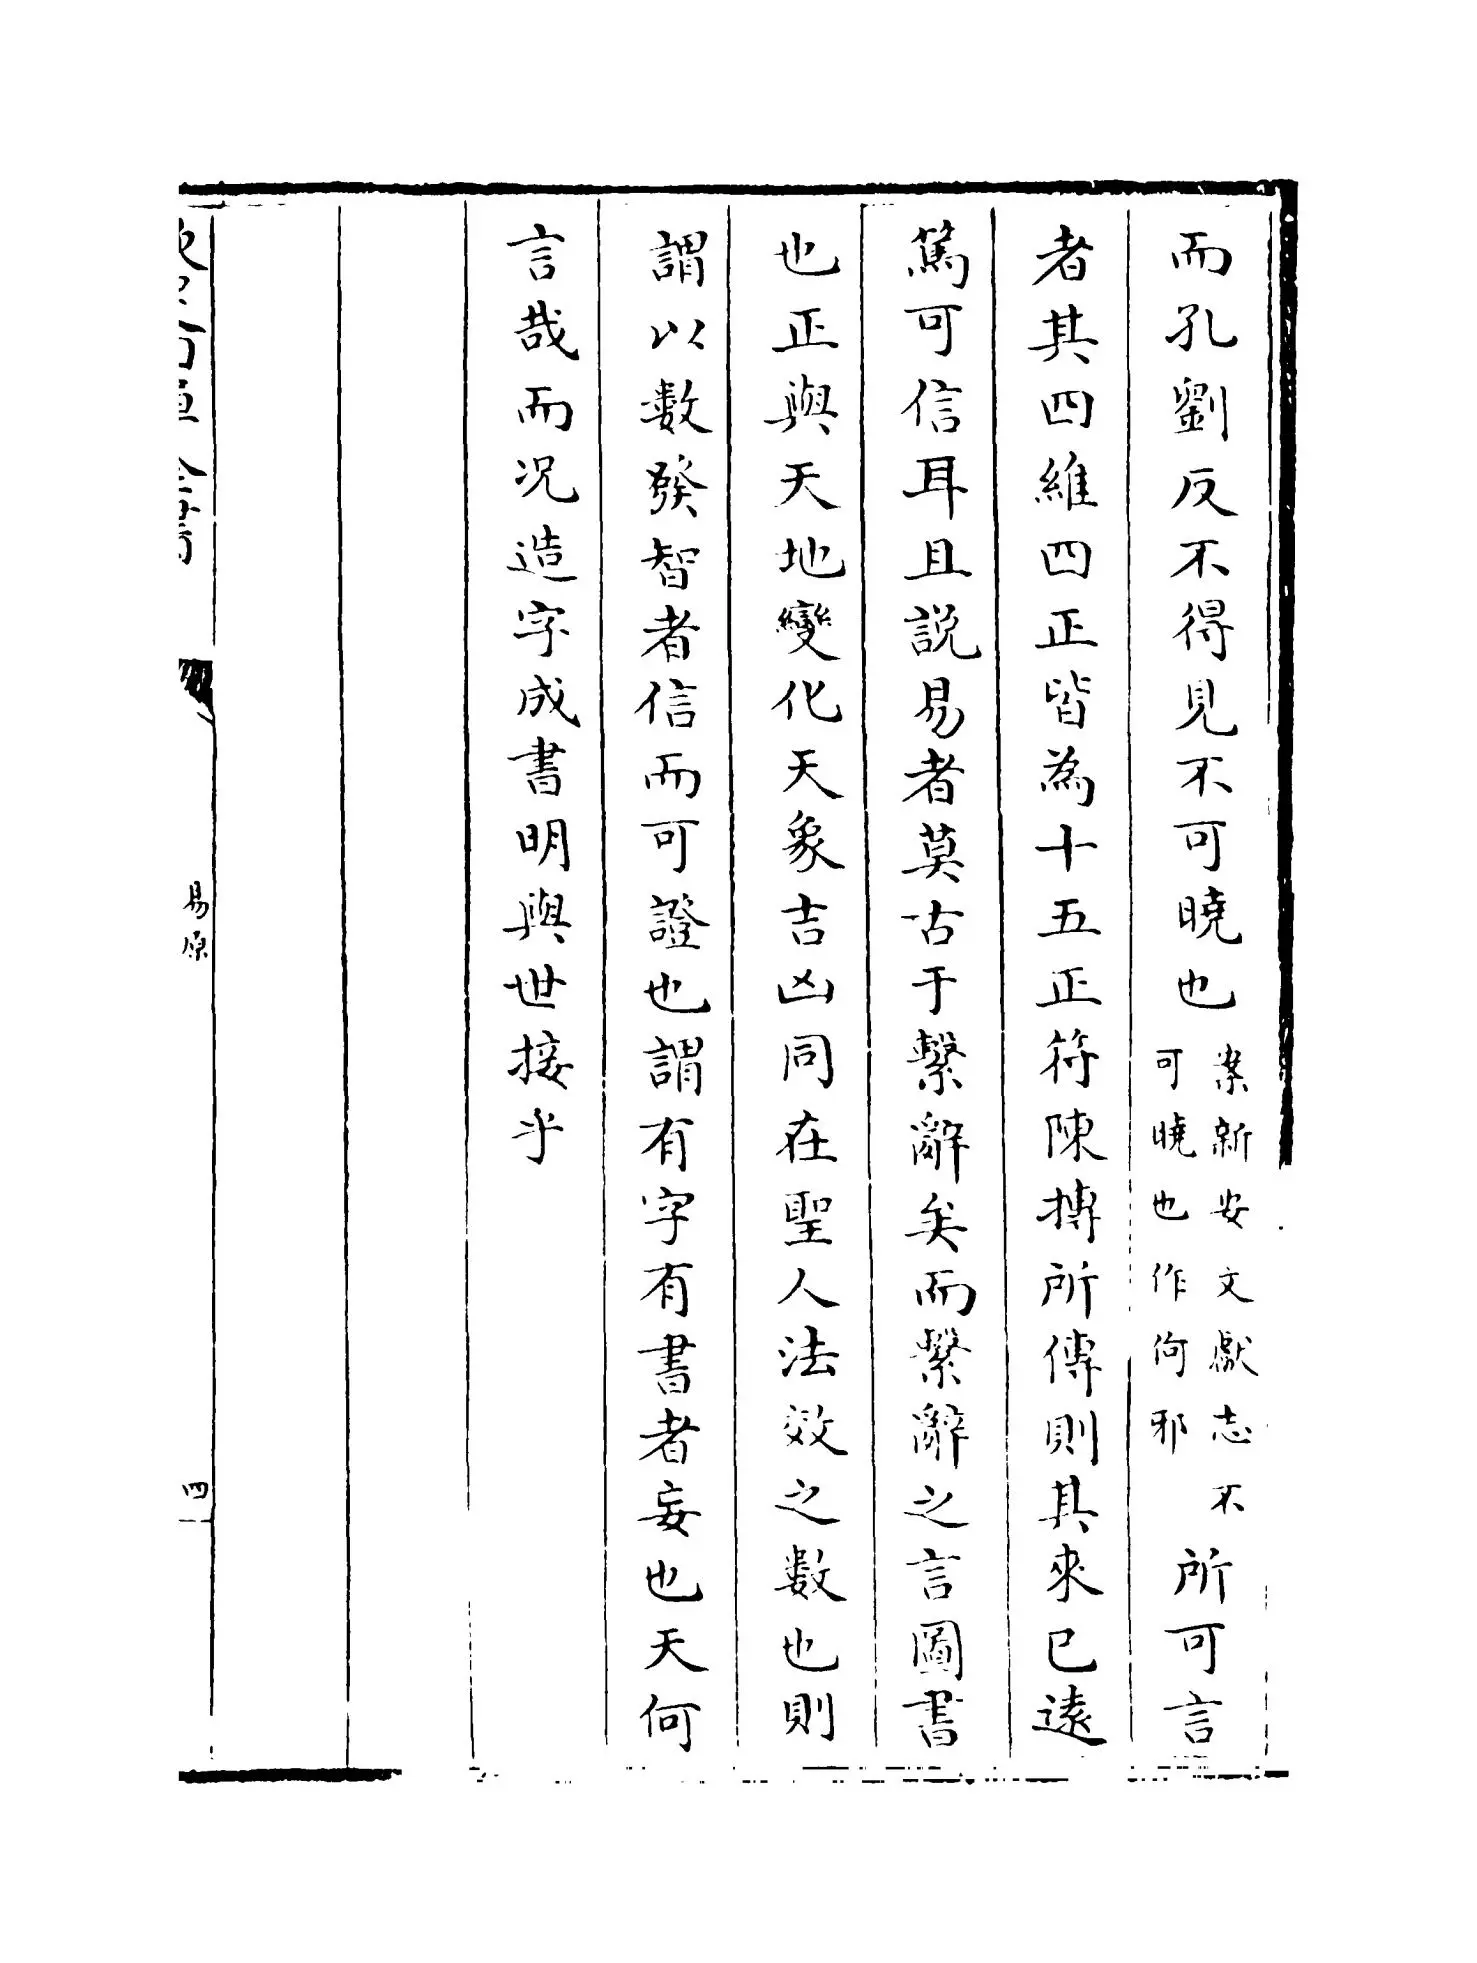 而孔劉反不得見不可曉也案新安文獻志不可曉也作何邪所可言
者其四維四正皆為十五正符陳摶所傳則其來已遠
篤可信耳且説易者莫古于繫辭矣而繫辭之言圖書
也正與天地變化天象吉凶同在聖人法效之數也則
謂以數發智者信而可證也謂有字有書者妄也天何
言哉而况造字成書明與世接乎
易原
四